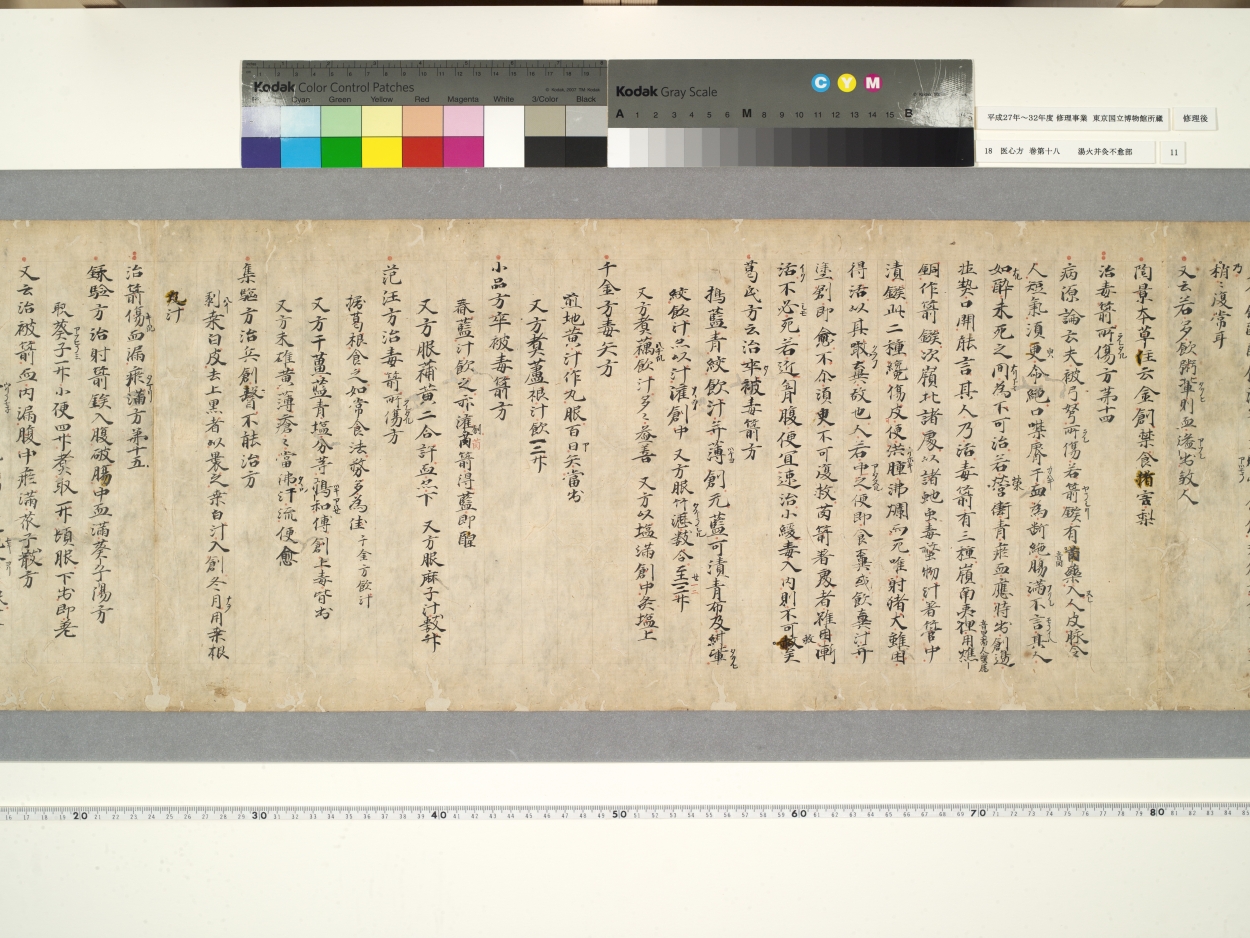 Kodak Color Control Patches
© Kodak, 2007 TM: Kodak
Cyan Green Yellow Red Magenta White 3/Color Black
Kodak Gray Scale
C Y M
A 1 2 3 4 5 6 M 8 9 10 11 12 13 14 15 B
平成27年～32年度 修理事業 東京国立博物館所蔵
修理後
18 医心方 巻第十八 湯火并灸不愈部
11
稍〻復常耳
又云若多飲粥輩則血溢出殺人
陶景本草注云金創禁食猪害梨
治毒箭所傷方第十四
病源論云夫被弓弩所傷若箭鏃有藥入人皮脉令
人短氣須更命絶口噤脣干血為断絶腸滿不言其人
如醉未死之間為不可治若營衛青瘀血應時出創邊
並契口開能言其人乃活毒箭有三種嶺南夷狸用燋
銅作箭鏃次嶺北諸處以諸虵虫毒螫物汁著管中
漬鏃此二種纔傷皮便洪腫沸爛而死唯射猪犬雖困
得活以其噉糞故也人若中之便即食糞或飲糞汁并
塗創即愈不尒須臾不可復救茵箭著處者雖困漸
治不必死若近胷腹便宜速治小緩毒入内則不可救矣
葛氏方云治卒被毒箭方
搗藍青絞飲汁并薄創无藍可漬青布及紺輩
絞飲汁亦以汁灌創中 又方服竹瀝数合至二三升
又方煮藕飲汁多〻益善 又方以塩滿創中灸塩上
千金方毒矢方
煎地黄汁作丸服百日矢當出
又方煮蘆根汁飲一三升
小品方卒被毒箭方
舂藍汁飲之亦灌茵箭得藍即醒
又方服蒲黄二合許血必下 又方服麻子汁数升
范汪方治毒箭所傷方
搗葛根食之如常食法務多為佳 千金方飲汁
又方干薑藍青塩分等搗和傅創上毒皆出
又方末雄黄薄瘡〻當沸汁流便愈
集驗方治兵創瞀不能治方
剥桑白皮去上黒者以裹之桑白汁入創冬月用桑根
汁
治箭傷血漏瘀滿方第十五
録驗方治射箭鏃入腹破腸中血滿葵子湯方
取葵子一升小便四升煮取一升頓服下出即差
又云治被箭血内漏腹中瘀滿蒺子散方
20 30 40 50 60 70 80